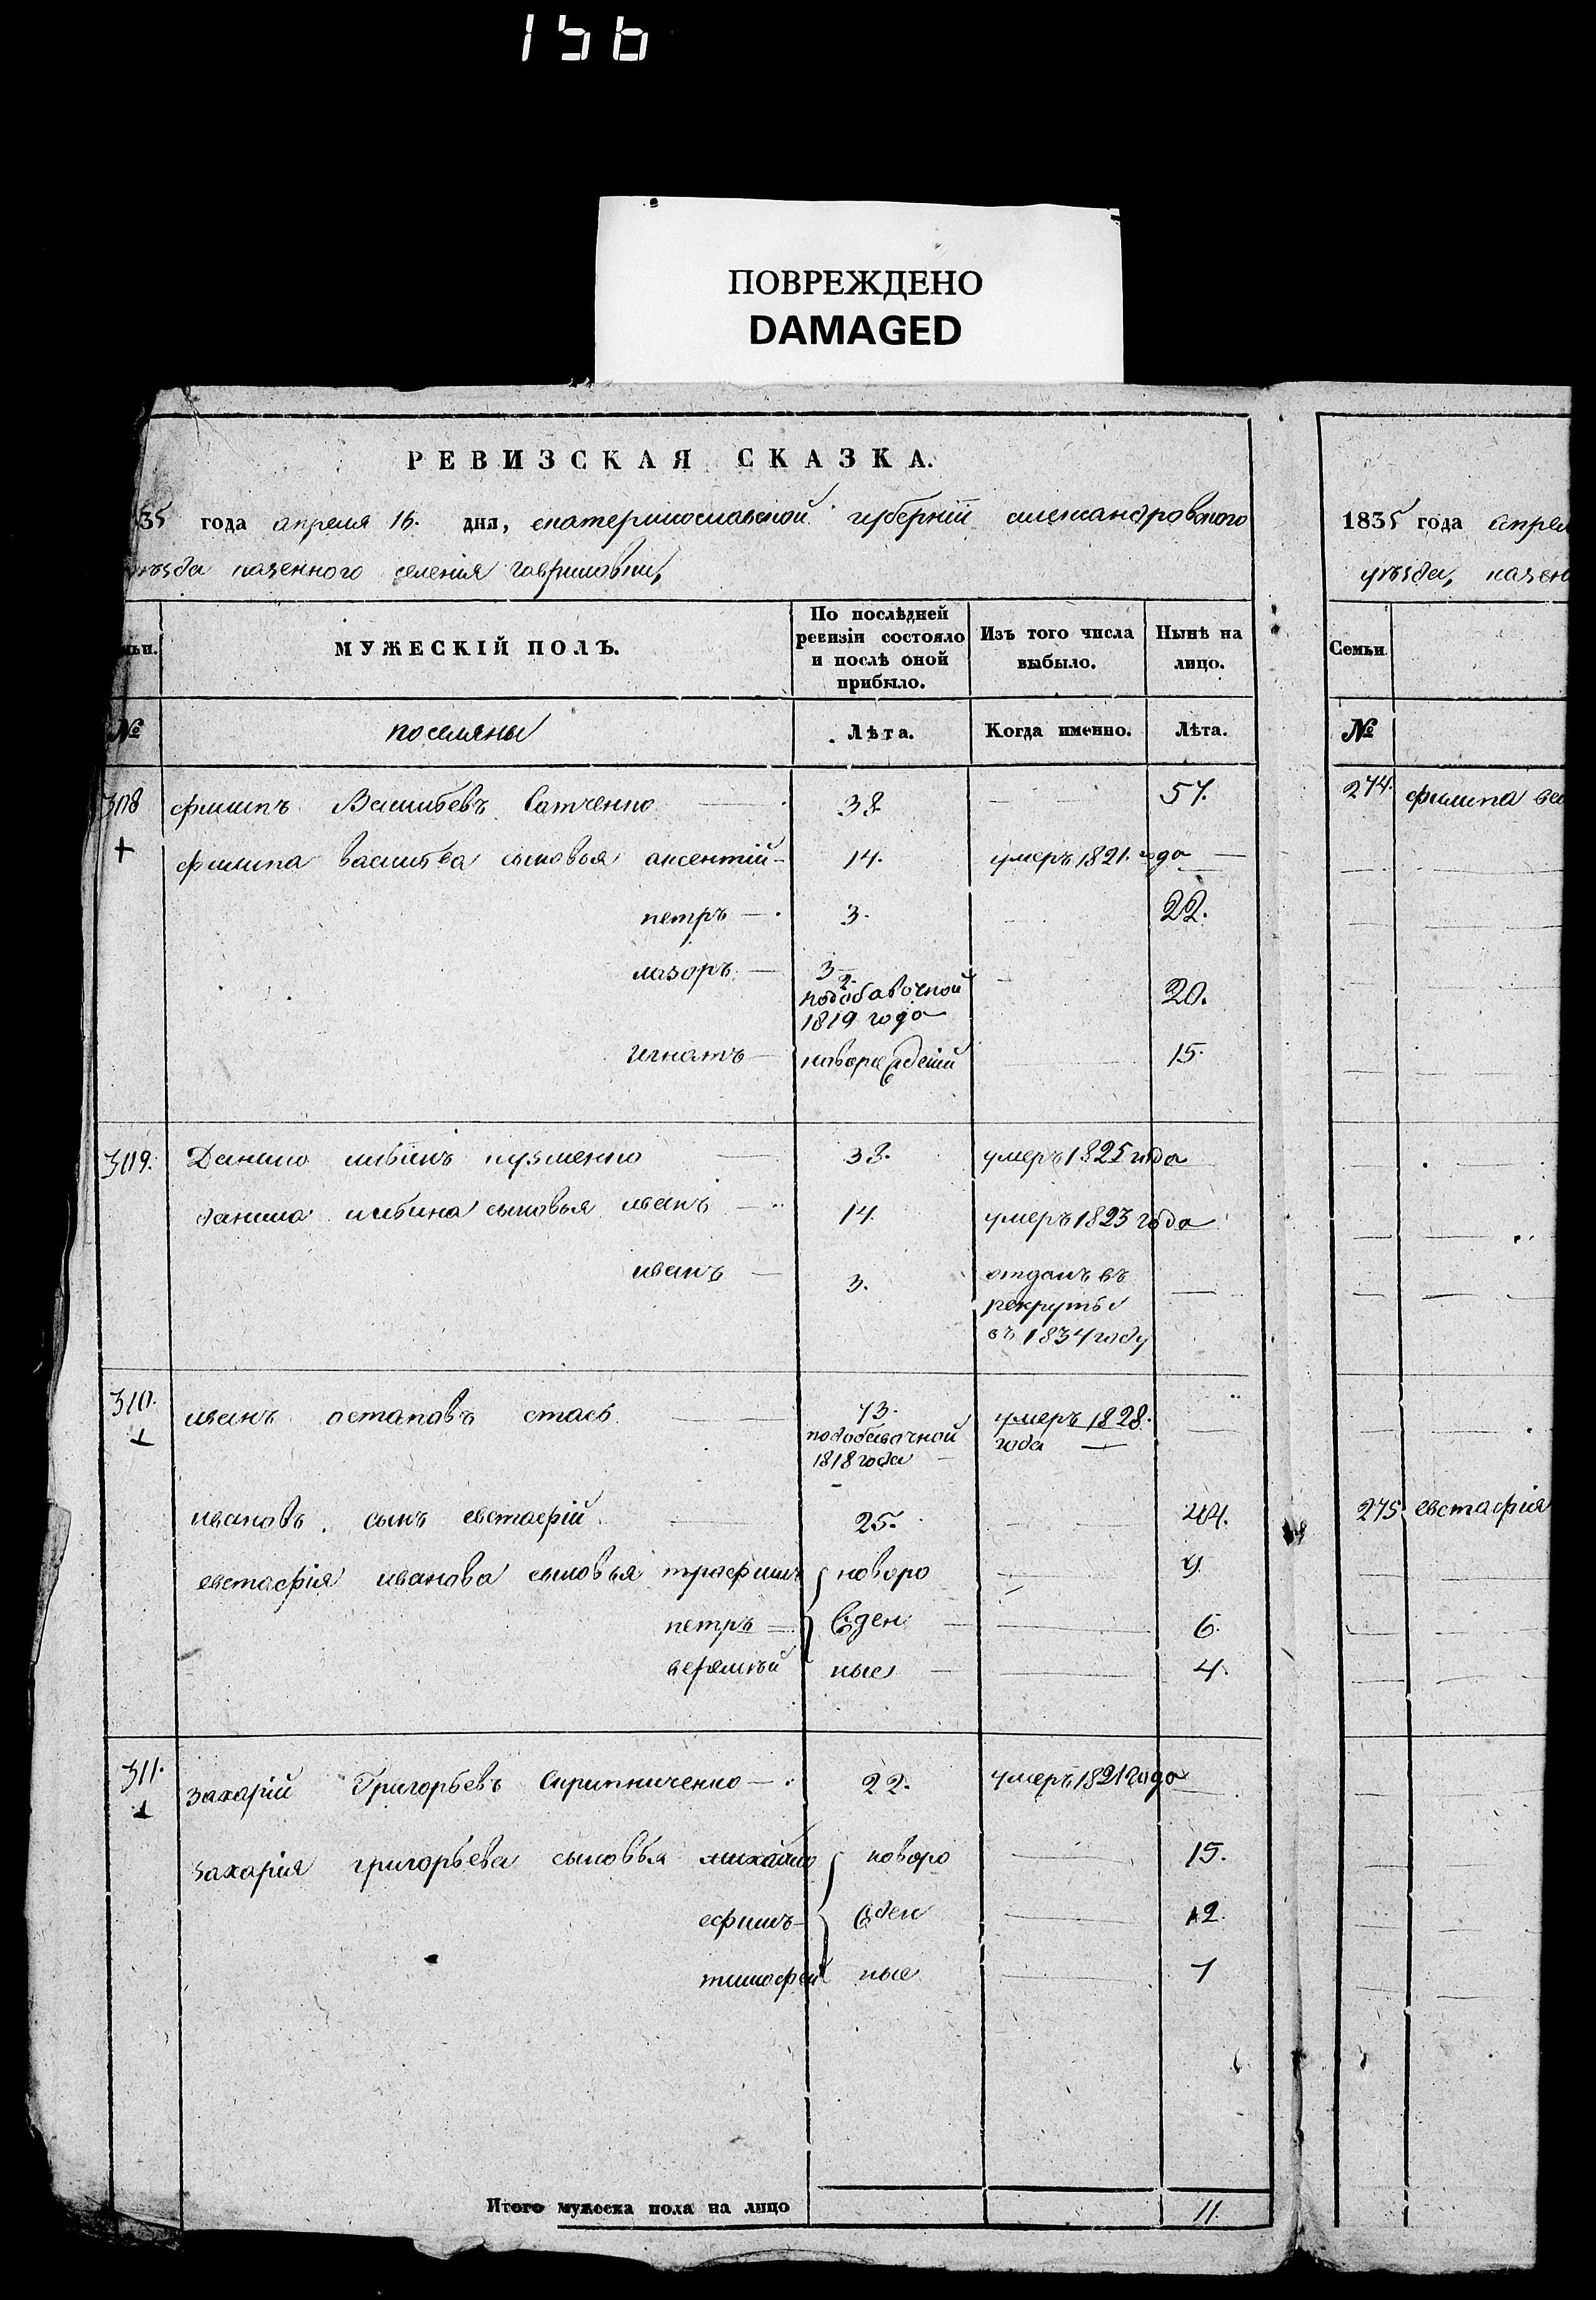 156
ПОВРЕЖДЕНО
DAMAGED
РЕВИЗСКАЯ СКАЗКА.
35 года апреля 16. дня, екатеринославской губерніи александровского
уѣзда казенного селения гавриловки,
МУЖЕСКІЙ ПОЛЪ.
По послѣдней ревизіи состояло и послѣ оной прибыло.
Изъ того числа выбыло.
Нынѣ на лицо.
№ поселяны Лѣта. Когда именно. Лѣта.
308 филипъ Васильевъ 38 57.
филипа васильева сыновья аксентій 14. умеръ 1821. года
петръ 3. 22.
лазоръ 3
подобавочной 20.
1819 года
игнатъ новорожденій 15.
309. Данило ильинъ кузменко 38. умеръ 1825 года
данила ильина сыновья иванъ 14. умеръ 1823 года
иванъ 3. отданъ въ
рекруты
въ 1834 году
310. иванъ остаповъ 73. умеръ 1828.
подобавочной года
1818 года
ивановъ сынъ евстафій 25. 44.
евстафія иванова сыновья трофимъ новоро 9.
петръ жден 6.
еремѣй ные 4.
311. захарій Григорьевъ Скрипниченко 22. умеръ 1821 года
захарія григорьева сыновья михайло новоро 15.
ефимъ жден 12.
тимофей ные 7
Итого мужеска пола на лицо 11.
1835 года апрел
уѣзда, казен
Семьи
№
274. филипа вас
275. евстафія